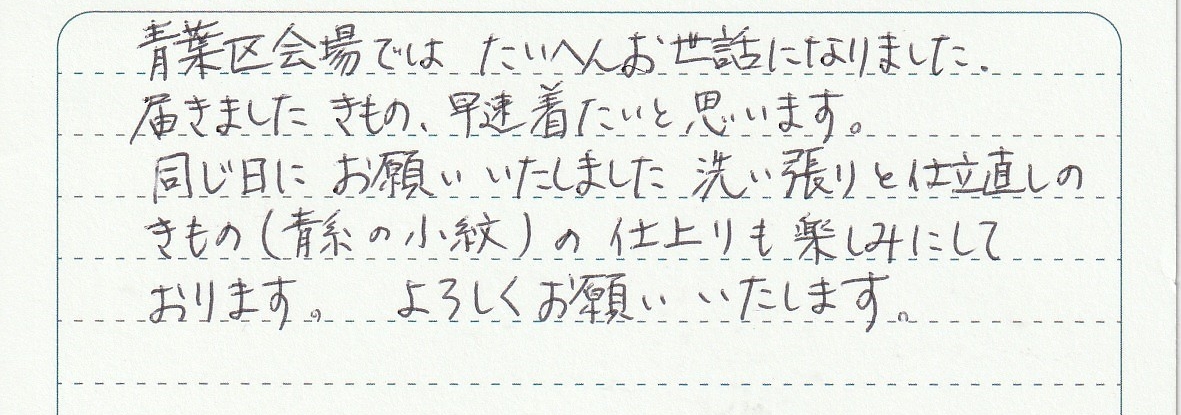 青葉区会場では たいへんお世話になりました.
届きました きもの、早速着たいと思います。
同じ日に お願い いたしました 洗い張りと仕立直しの
きもの(青系の小紋)の 仕上りも楽しみにして
おります。 よろしくお願い いたします。